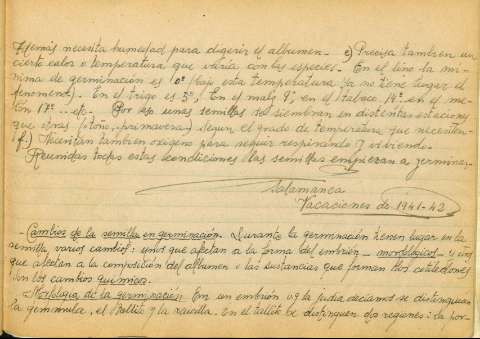 Además necesita humedad para digerir el albumen.- e) Precisa también un
cierto calor o temperatura que varía con las especies.- En el lino la mí-
nima de germinación es 0º (bajo esta temperatura ya no tiene lugar el
fenómeno). En el trigo es 3º, En el maíz 9º, en el tabaco, 14º en el me-
lón 17º ... etc. Por eso unas semillas se siembran en distintas estaciones
que otras (otoño, primavera) según el grado de temperatura que necesiten
f.) Necesitan también oxígeno para seguir respirando y viviendo.
Reunidas todas estas condiciones las semillas empiezan a germinar.
Salamanca
Vacaciones de 1941-42
- Cambios de la semilla en germinación. Durante la germinación tienen lugar en la
semilla varios cambios: unos que afectan a la forma del embrión - morfológicos - y otros
que afectan a la composición del albumen o las sustancias que forman los cotiledones
son los cambios químicos.
- Morfología de la germinación En un embrión v.g la judía decíamos se distinguían
la gemmula, el tallito y la raicilla. En el tallito se distinguen dos regiones: la por-